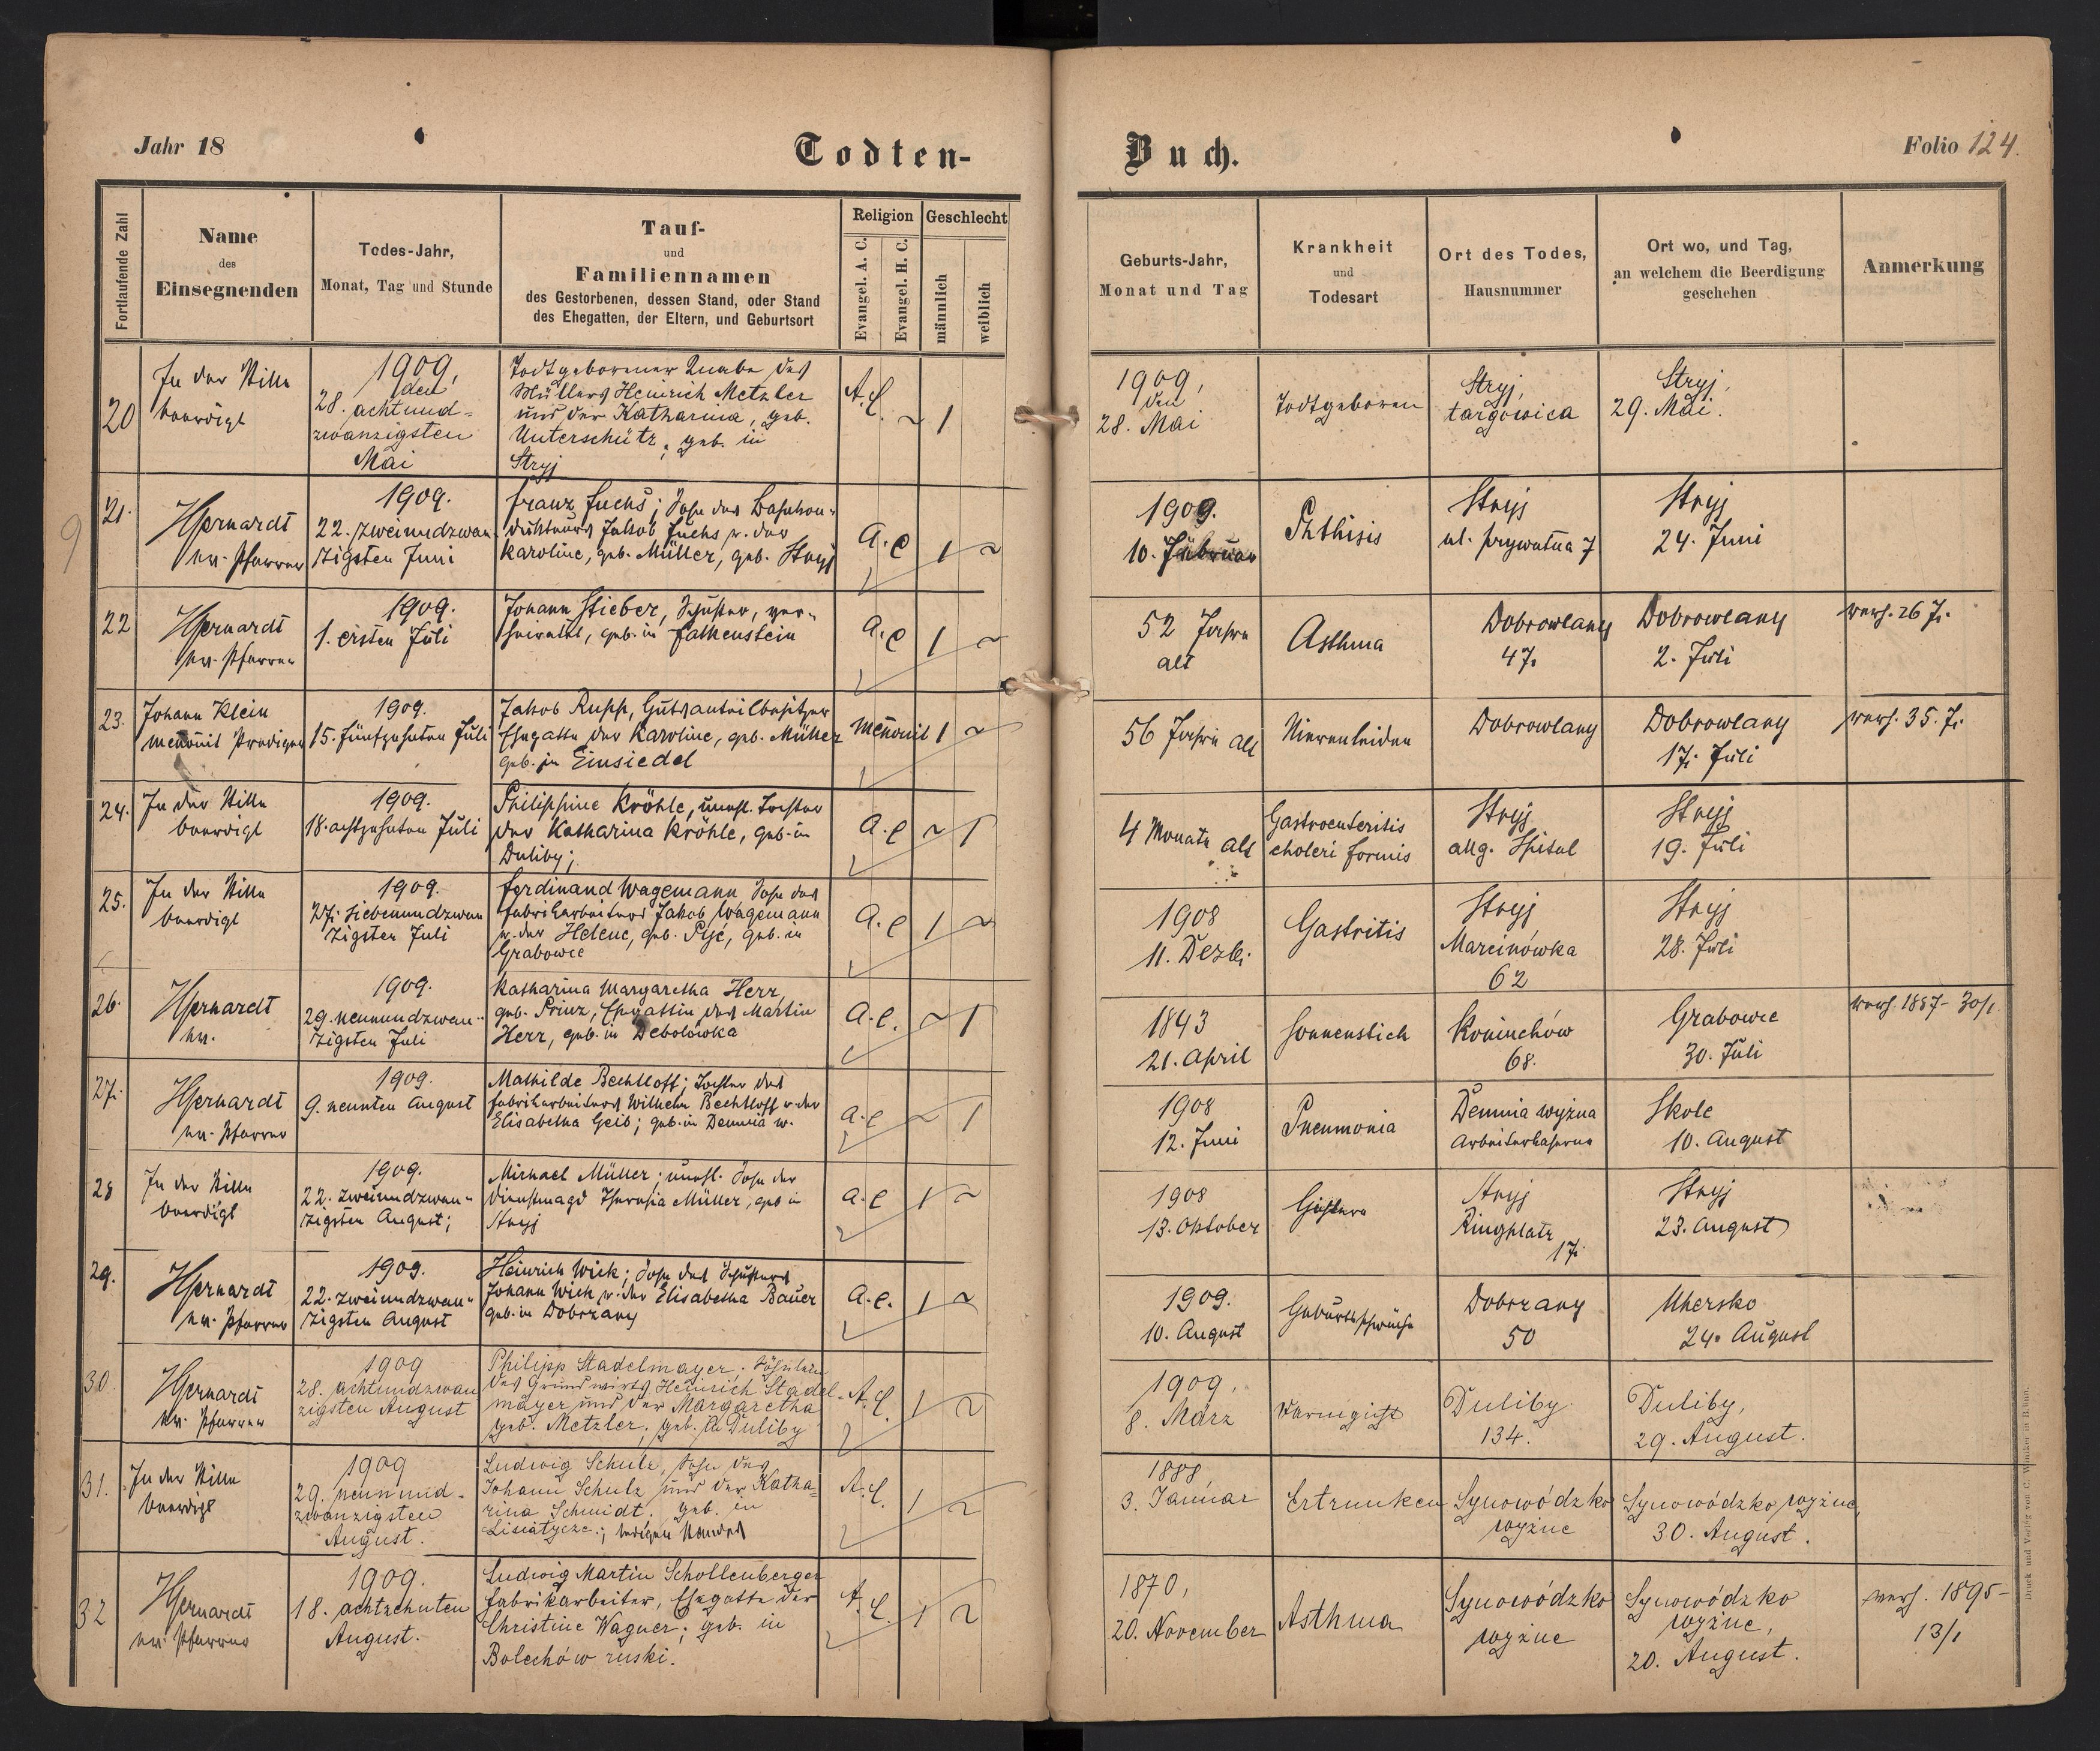 Jahr 18
Todten-
Buch.
Folio 124.
Fortlaufende Zahl
Name
des
Einsegnenden
Todes-Jahr,
Monat, Tag und Stunde
Tauf-
und
Familiennamen
des Gestorbenen, dessen Stand, oder Stand
des Ehegatten, der Eltern, und Geburtsort
Religion
Evangel. A. C.
Evangel. H. C.
Geschlecht
männlich
weiblich
Geburts-Jahr,
Monat und Tag
Krankheit
und
Todesart
Ort des Todes,
Hausnummer
Ort wo, und Tag,
an welchem die Beerdigung
geschehen
Anmerkung
20
In der Stille
beerdigt
1909,
den
28. achtund-
zwanzigsten
Mai
Todtgeborener Knabe des
Müllers Heinrich Metzler
und der Katharina, geb.
Unterschütz, geb. in
Stryj
A. C.
1
1909,
den
28. Mai
Todtgeboren
Stryj,
targowica
Stryj,
29. Mai.
21.
ev. Pfarrer
1909.
22. zweiundzwan
zigsten Juni
Franz Fuchs; Sohn des Bahnkon-
dukteurs Jakob Fuchs u. der
Karoline, geb. Müller, geb. Stryj
A. C
1
1909.
10. Februar
Phthisis
Stryj
ul. prywatna 7
Stryj
24. Juni
22
ev. Pfarrer
1909.
1. ersten Juli
Johann Stieber, Schuster, ver-
heiratet, geb. in Falkenstein
A. C
1
52 Jahre
alt
Asthma
Dobrowlany
47.
Dobrowlany
2. Juli
verh. 26 J.
23.
Johann Klein
menonit Prediger
1909.
15. fünfzehnten Juli
Jakob Rupp, Gutsanteilbesitzer
Ehegatte der Karoline, geb. Müller
geb. in Einsiedel
Menonit
1
56 Jahre alt
Nierenleiden
Dobrowlany
Dobrowlany
17. Juli
verh. 35. J.
24.
In der Stille
beerdigt
1909.
18. achtzehnten Juli
Philippine Kröhle, unehl. Tochter
der Katharina Kröhle, geb. in
Duliby;
A. C
1
4 Monate alt
Gastroenteritis
choleri formis
Stryj
allg. Spital
Stryj
19. Juli
25.
In der Stille
beerdigt
1909.
27. siebenundzwan
zigsten Juli
Ferdinand Wagemann Sohn des
Fabrikarbeiters Jakob Wagemann
u. der Helene, geb. geb. in
Grabowce
A. C
1
1908
11. Dezb.
Gastritis
Stryj
Marcinówka
62
Stryj
28. Juli
26.
ev.
1909.
29. neunundzwan-
zigsten Juli
Katharina Margaretha Herr,
geb. Prinz, Ehegattin des Martin
Herr, geb. in Debolówka
A. C.
1
1843
21. April
Sonnenstich
Koniuchów
68.
Grabowce
30. Juli
verh. 1887- 30/1
27.
ev. Pfarrer
1909.
9. neunten August
Mathilde Bechtloff; Tochter des
Fabrikarbeiters Wilhelm Bechtloff u. der
Elisabetha Geib; geb. in Demnia w.
A. C
1
1908
12. Juni
Pneumonia
Demnia wyżna
Arbeiterkaserne
Skole
10. August
28
In der Stille
beerdigt
1909.
22. zweiundzwan-
zigsten August;
Michael Müller; unehl. Sohn der
Dienstmagd Theresia Müller, geb in
Stryj
A. C
1
1908
13. Oktober
Stryj
Ringplatz
17.
Stryj
23. August
29.
ev. Pfarrer
1909.
22. zweiundzwan-
zigsten August
Heinrich Wick; Sohn des Schusters
Johann Wick u. der Elisabetha Bauer
geb. in Dobrzany
A. C.
1
1909.
10. August
Geburtsschwäche
Dobrzany
50
Uhersko
24. August
30.
ev. Pfarrer
1909
28. achtundzwan
zigsten August
Philipp Stadelmayer, Söhnlein
des Grundwirts Heinrich Stadel-
mayer und der Margaretha
geb. Metzler, geb. in Duliby
A. C.
1
1909,
8. März
Duliby
134.
Duliby,
29. August.
31.
In der Stille
beerdigt
1909
29. neunund-
zwanzigsten
August.
Ludwig Schulz, Sohn des
Johann Schulz und der Katha-
rina Schmidt, geb. in
Lisiatycze.; ledigen Standes
A. C.
1
1888,
3. Januar
Ertrunken
Synowódzko
wyżne
Synowódzko wyżne,
30. August.
32
ev. Pfarrer
1909.
18. achtzehnten
August.
Ludwig Martin Schollenberger
Fabrikarbeiter, Ehegatte der
Christine Wagner; geb. in
Bolechów ruski.
A. C.
1
1870,
20. November
Asthma
Synowódzko
wyżne
Synowódzko
wyżne,
20. August.
verh. 1895-
13/1